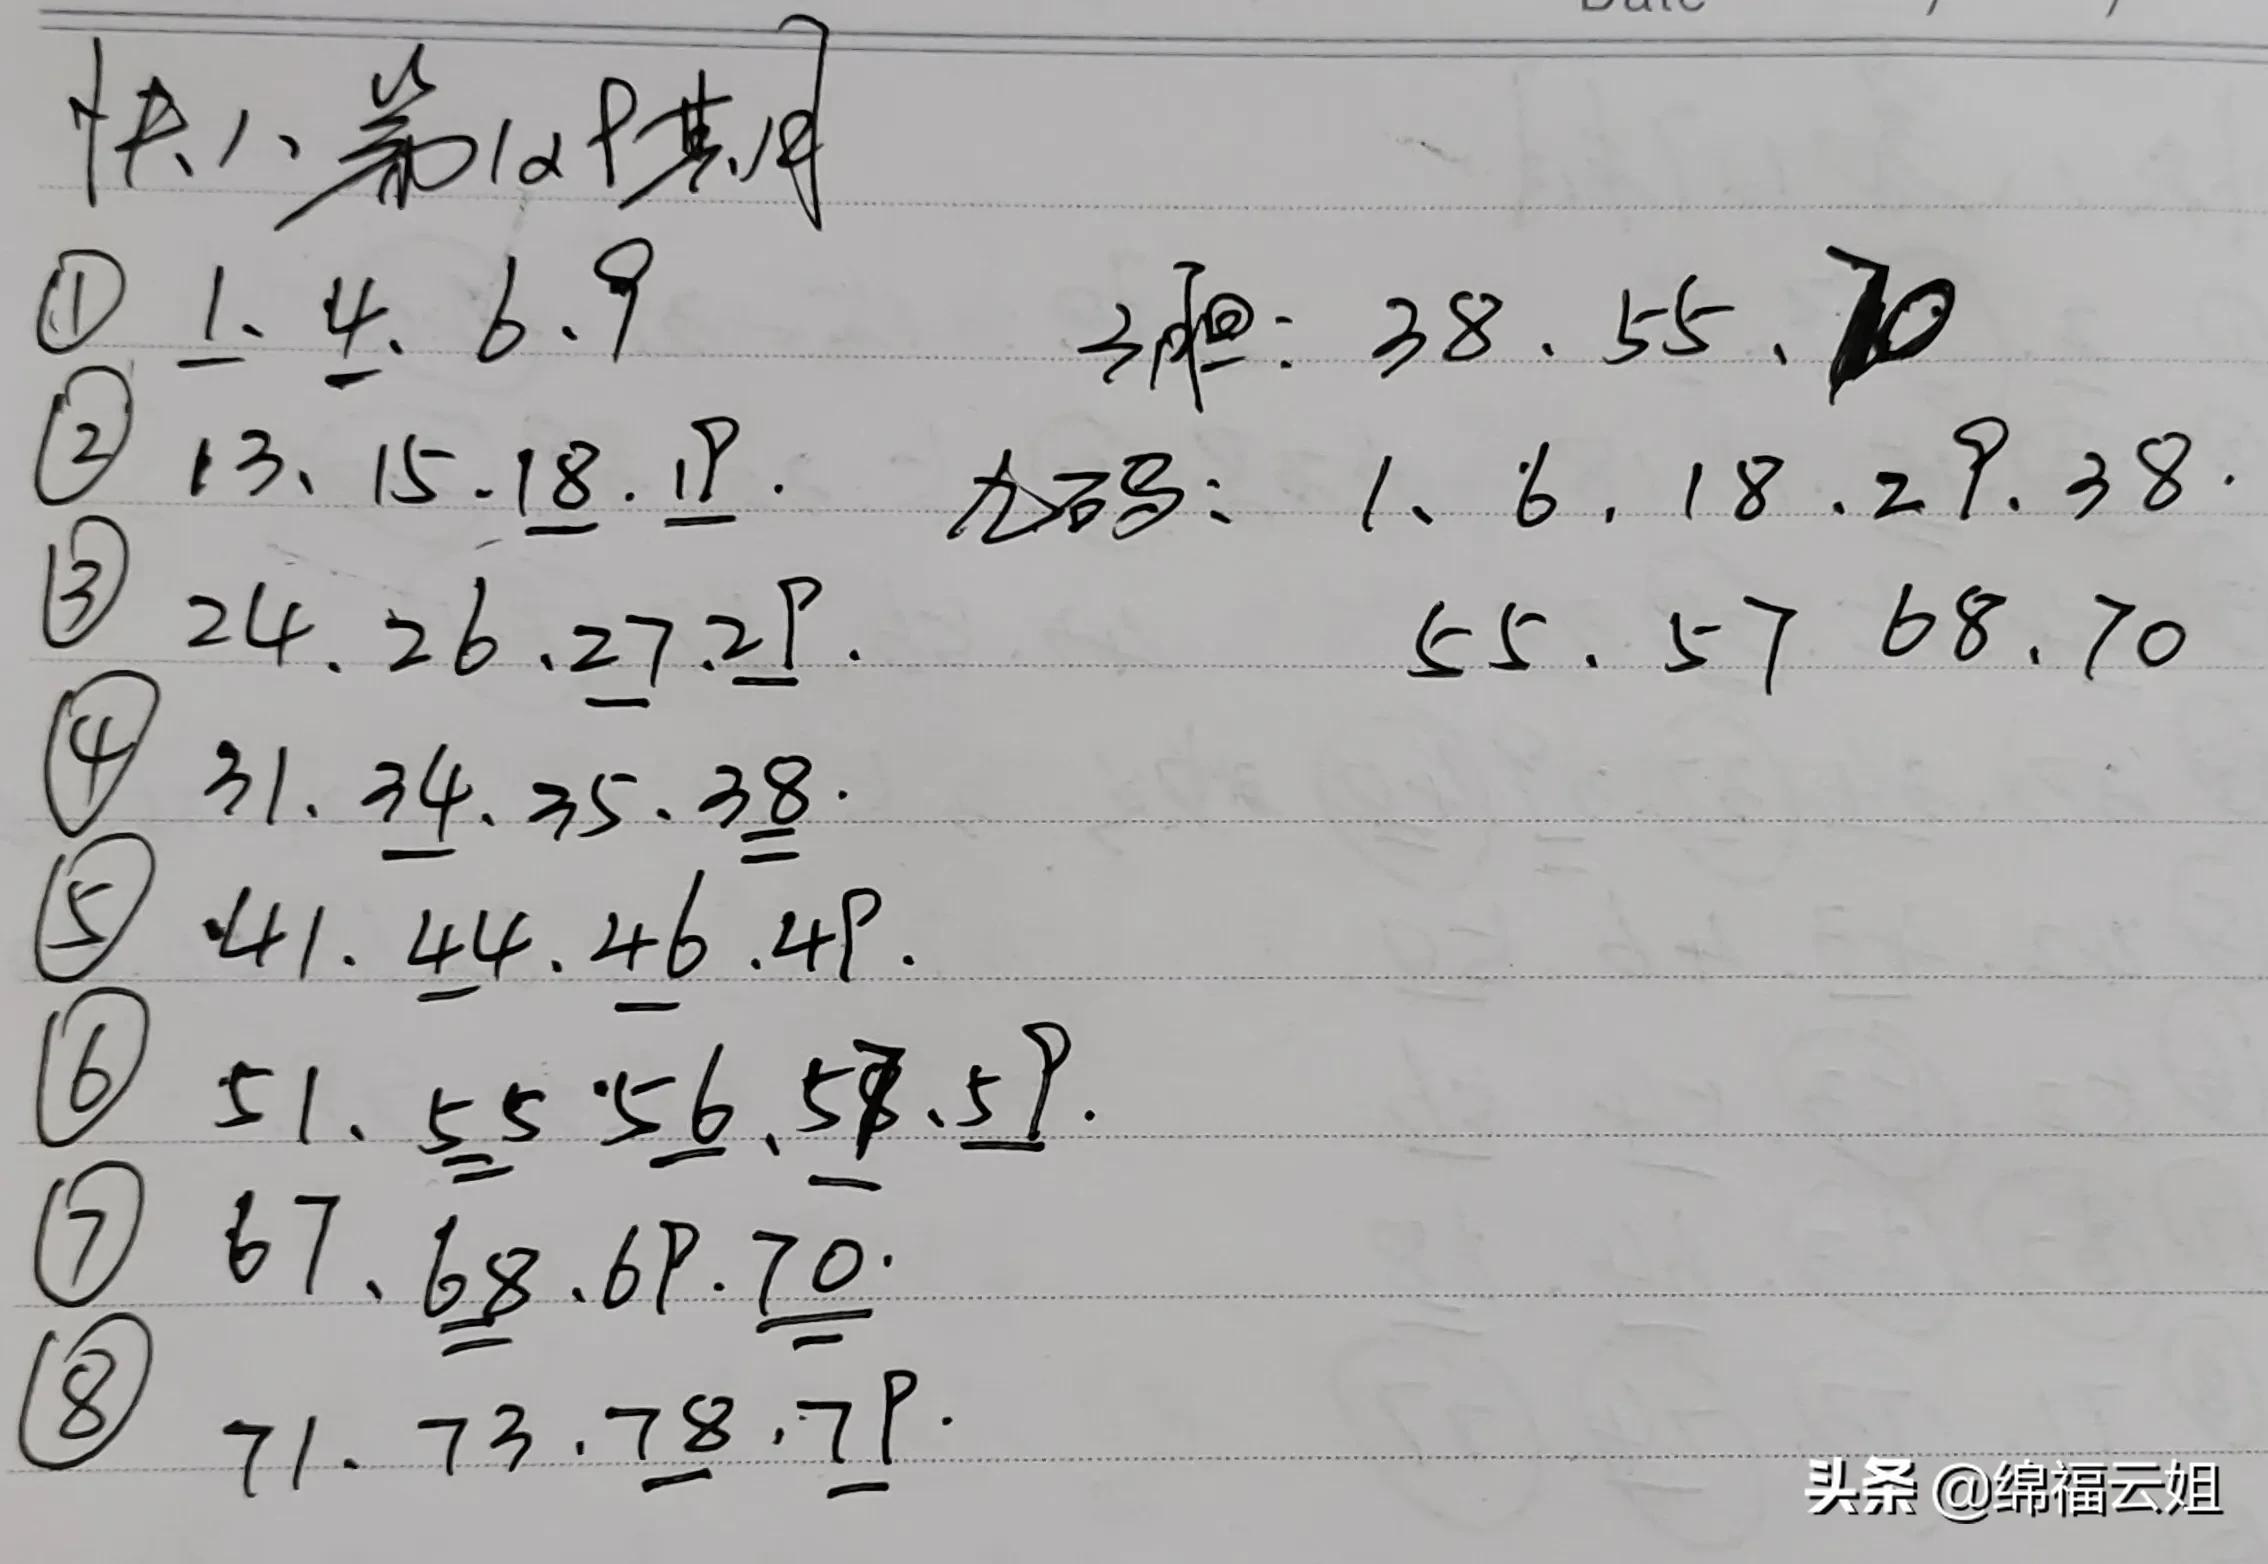 Date / /
快八第129期
① 1、4、6、9 3胆: 38、55、70
② 13、15.18.19. 九码: 1、6.18.29.38.
③ 24.26.27.29. 55.57 68.70
④ 31.34.35.38.
⑤ 41.44.46.49.
⑥ 51、55 56、57、59.
⑦ 67、68.69.70.
⑧ 71.73.78.79.
头条 @绵福云姐